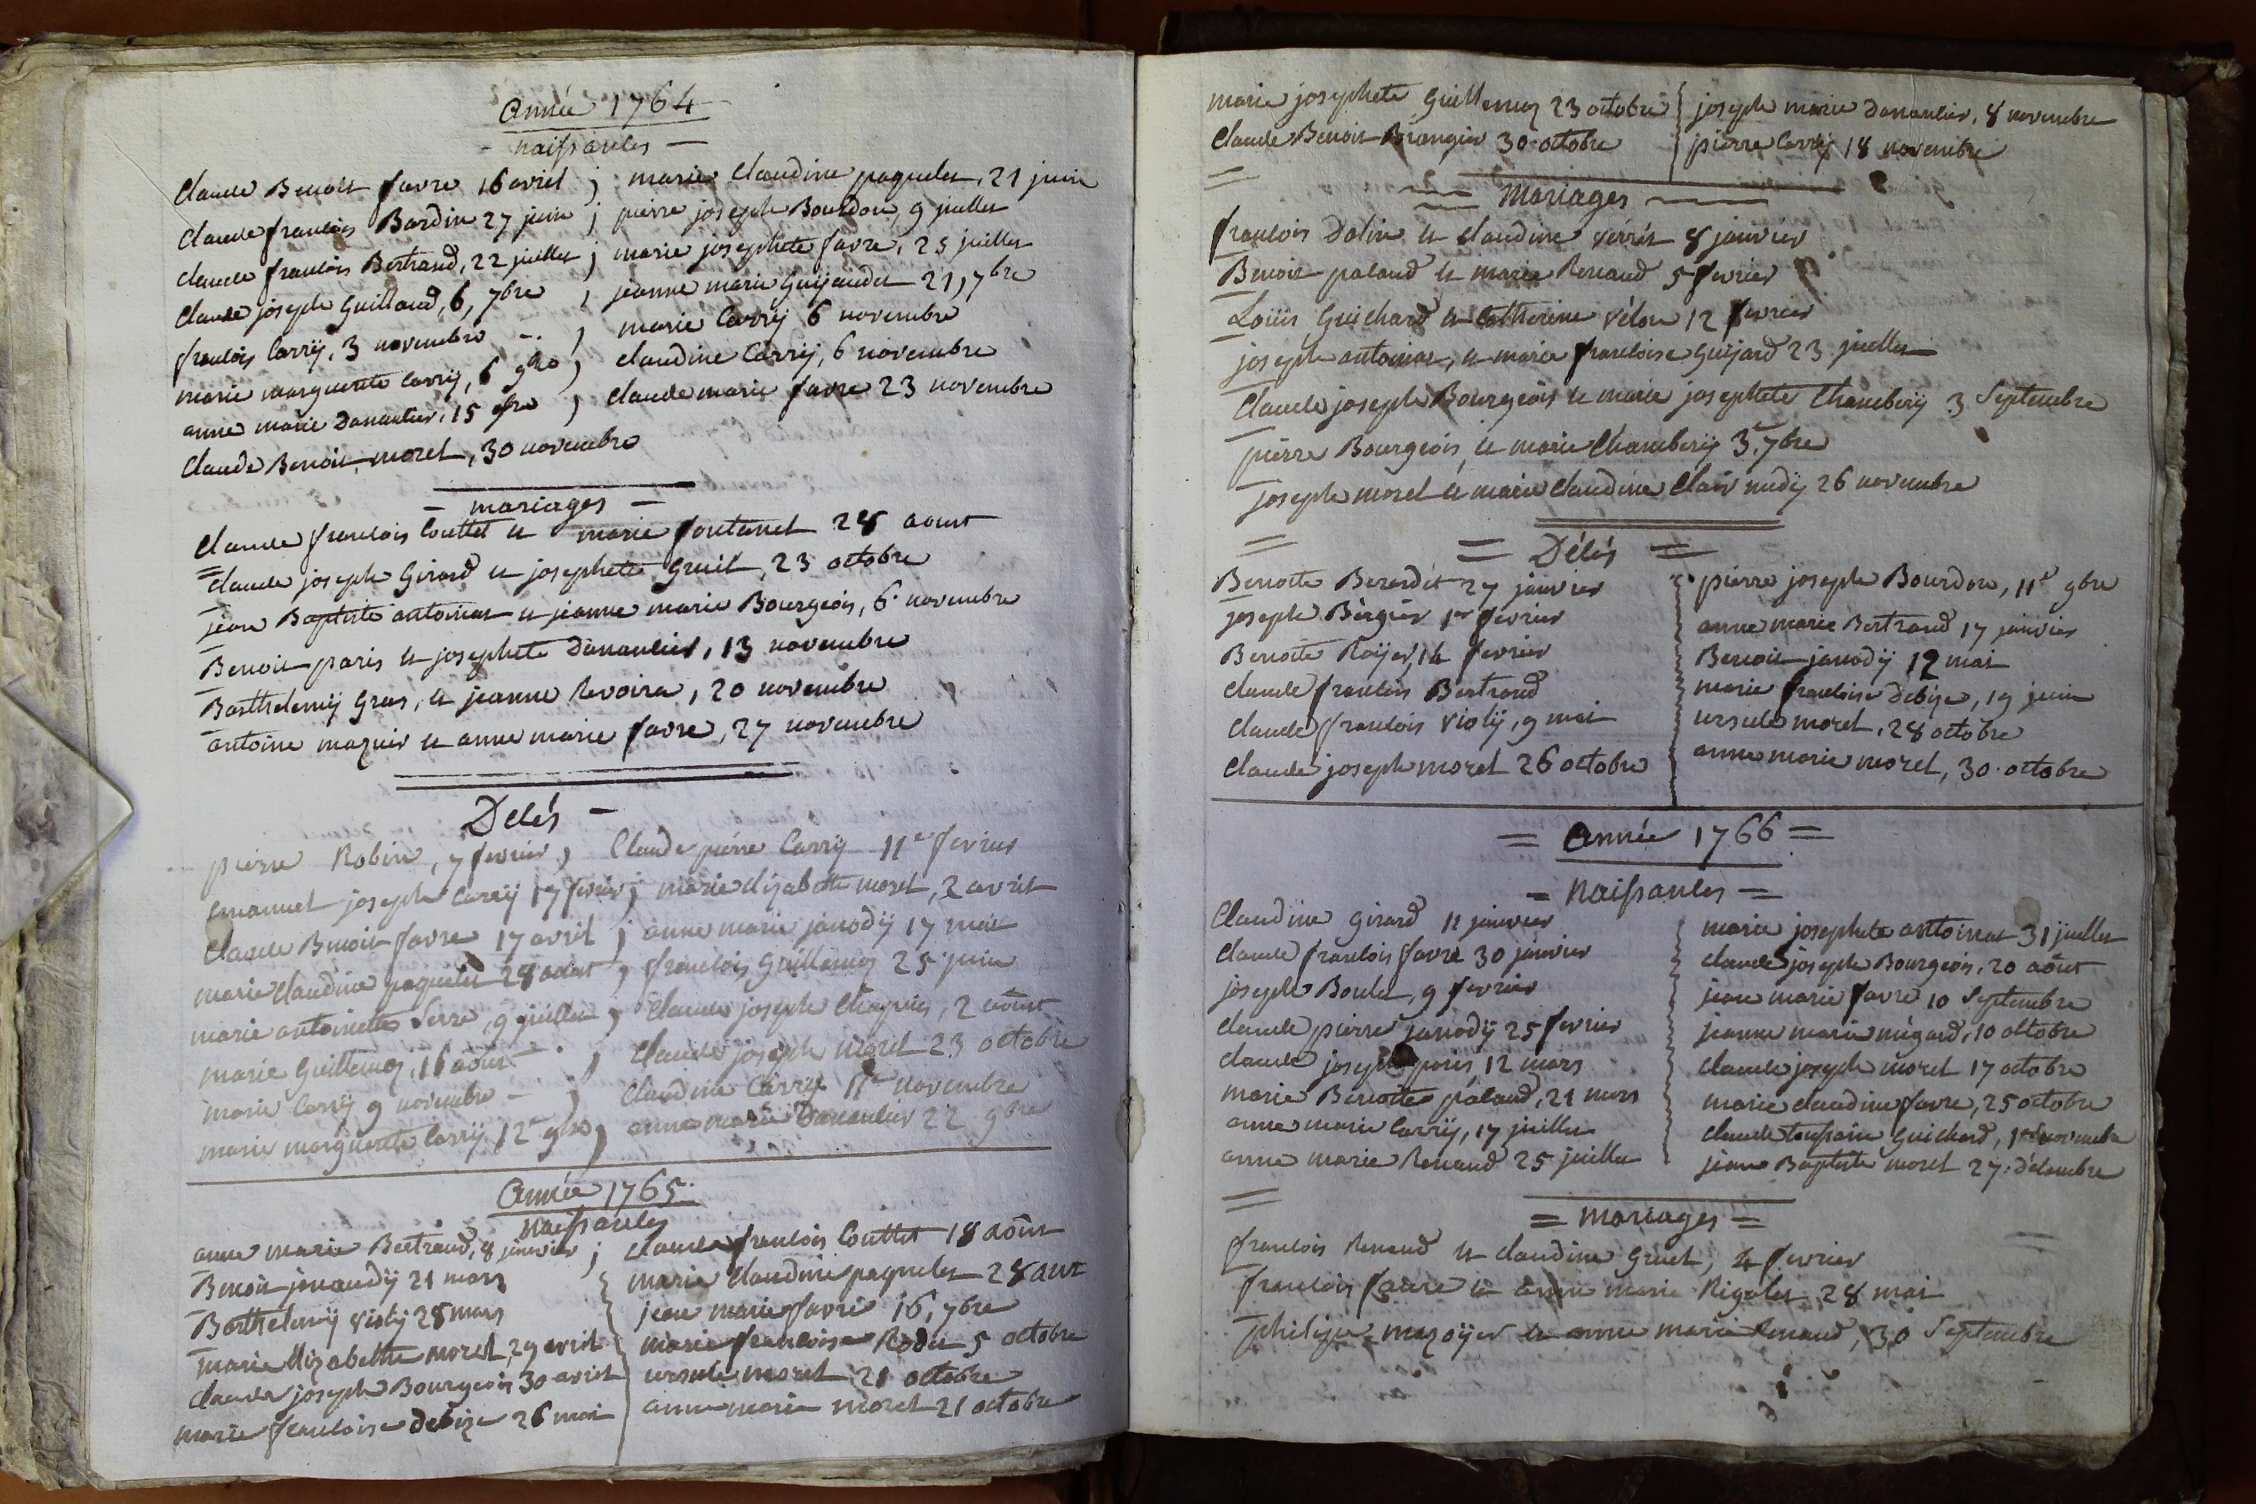 année 1764
naissances
Claude Benoit favre 16 avril ; marie Claudine paquelet, 21 juin
Claude francois Bardin 27 juin ; pierre joseph Bourdon, 9 juillet
Claude francois Bertrand, 22 juillet ; marie josephete favre, 25 juillet
Claude joseph Guilland, 6, 7bre ; jeanne marie Guijaudet 21, 7bre
francois Carrÿ, 3 novembre - ; marie Carrÿ 6 novembre
marie marguerite Carrÿ, 6 9bre ; claudine Carrÿ, 6 novembre
anne marie Dananlier, 15 9bre ; claude marie favre 23 novembre
Claude Benoit morel, 30 novembre
- mariages -
Claude francois Couttet et marie fontanet 28 aout
Claude joseph Girard et josephete Gruil, 23 octobre
jean Baptiste antoinat et jeanne marie Bourgeois, 6 novembre
Benoit paris et josephete Dananlier, 13 novembre
Barthelemÿ Gras, et jeanne Revoire, 20 novembre
antoine mazuir et anne marie favre, 27 novembre
Décés -
pierre Robin, 7 fevrier ; Claude pierre Carrÿ 11e fevrier
Emanuel joseph Carrÿ 17 fevrier ; marie elizabette morel, 2 avril
Claude Benoit favre 17 avril ; anne marie janodÿ 17 mai
marie claudine paquelet 28 aout ; francois Guillemoz 25 juin
marie antoinette Serre, 9 juillet ; Claude joseph Chapuis, 2 aout
marie Guillemoz, 16 aout ; Claude joseph morel 23 octobre
marie Carrÿ 9 novembre - ; Claudine Carrÿ 11e novembre
marie marguerite Carrÿ 12e 9bre ; anne marie Dananlier 22 9bre
année 1765
naissances
anne marie Bertrand, 8 janvier ; claude francois Couttet 18 aout
Benoit janaudÿ 21 mars marie claudine paquelet 28 aout
Barthelemÿ violÿ 28 mars jean marie favre 16, 7bre
marie Elizabethe morel, 29 avril marie francoise Rodet 5 octobre
Claude joseph Bourgeois 30 avril ursule morel 21 octobre
marie francoise debize 26 mai anne marie morel 21 octobre
marie josephete Guillemoz 23 octobre joseph marie Dananlier, 8 novembre
Claude Benoit Brangier 30 octobre pierre Carrÿ 18 novembre
mariages
francois Dalin et claudine verrét 8 janvier
Benoit paland et marie Renaud 5 fevrier
Loüis Guichard et Catherine vélon 12 fevrier
joseph antoinat, et marie francoise Guijard 23 juillet
Claude joseph Bourgeois et marie josephete Chamberÿ 3 Septembre
pierre Bourgeois, et marie Chamberÿ 3e 7bre
joseph morel et marie claudine, Clair midÿ 26 novembre
= Décés =
Benoite Berardet 27 janvier pierre joseph Bourdon, 11e 9bre
joseph Bergier 1er fevrier anne marie Bertrand 17 janvier
Benoite Roÿer, 14 fevrier Benoit janodÿ 12 mai
Claude francois Bertrand marie francoise debize, 19 juin
Claude francois violÿ, 9 mai ursule morel, 28 octobre
Claude joseph morel 26 octobre anne marie morel, 30 octobre
= année 1766 =
= Naissances =
Claudine Girard 11 janvier marie josephete antoinat 31 juillet
Claude francois favre 30 janvier claude joseph Bourgeois, 20 aôut
joseph Boulet, 9 fevrier jean marie favre 10 Septembre
Claude pierre janodÿ 25 fevrier jeanne marie mégard, 10 octobre
Claude joseph paris 12 mars claude joseph morel 17 octobre
marie Benoite paland, 21 mars marie claudine favre, 25 octobre
anne marie Carrÿ, 17 juillet claude toussain Guichard, 1er novembre
anne marie Renaud 25 juillet jean Baptiste morel 27 décembre
= mariages =
francois Renaud et claudine Gruel, 4 fevrier
francois favre et anne marie Rigolet 28 mai
philipe mazoÿer et anne marie Renaud, 30 Septembre